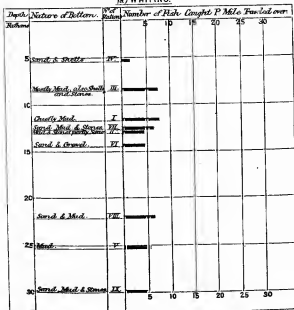 (a) WHITING.
Depth Nature of Bottom. Nº of Station Number of Fish Caught P Mile Trawled over
Fathoms 5 10 15 20 25 30
5
Sand & Shells IV.
Mostly Mud, also Shells and Stones. III.
10
Chiefly Mud. I
Sand Mud & Stones VII.
Mud & partly Sand II
Sand & Gravel. VI
15
20
Sand & Mud. VIII.
25 Mud. V
30 Sand, Mud & Stones IX
5 10 15 20 25 30